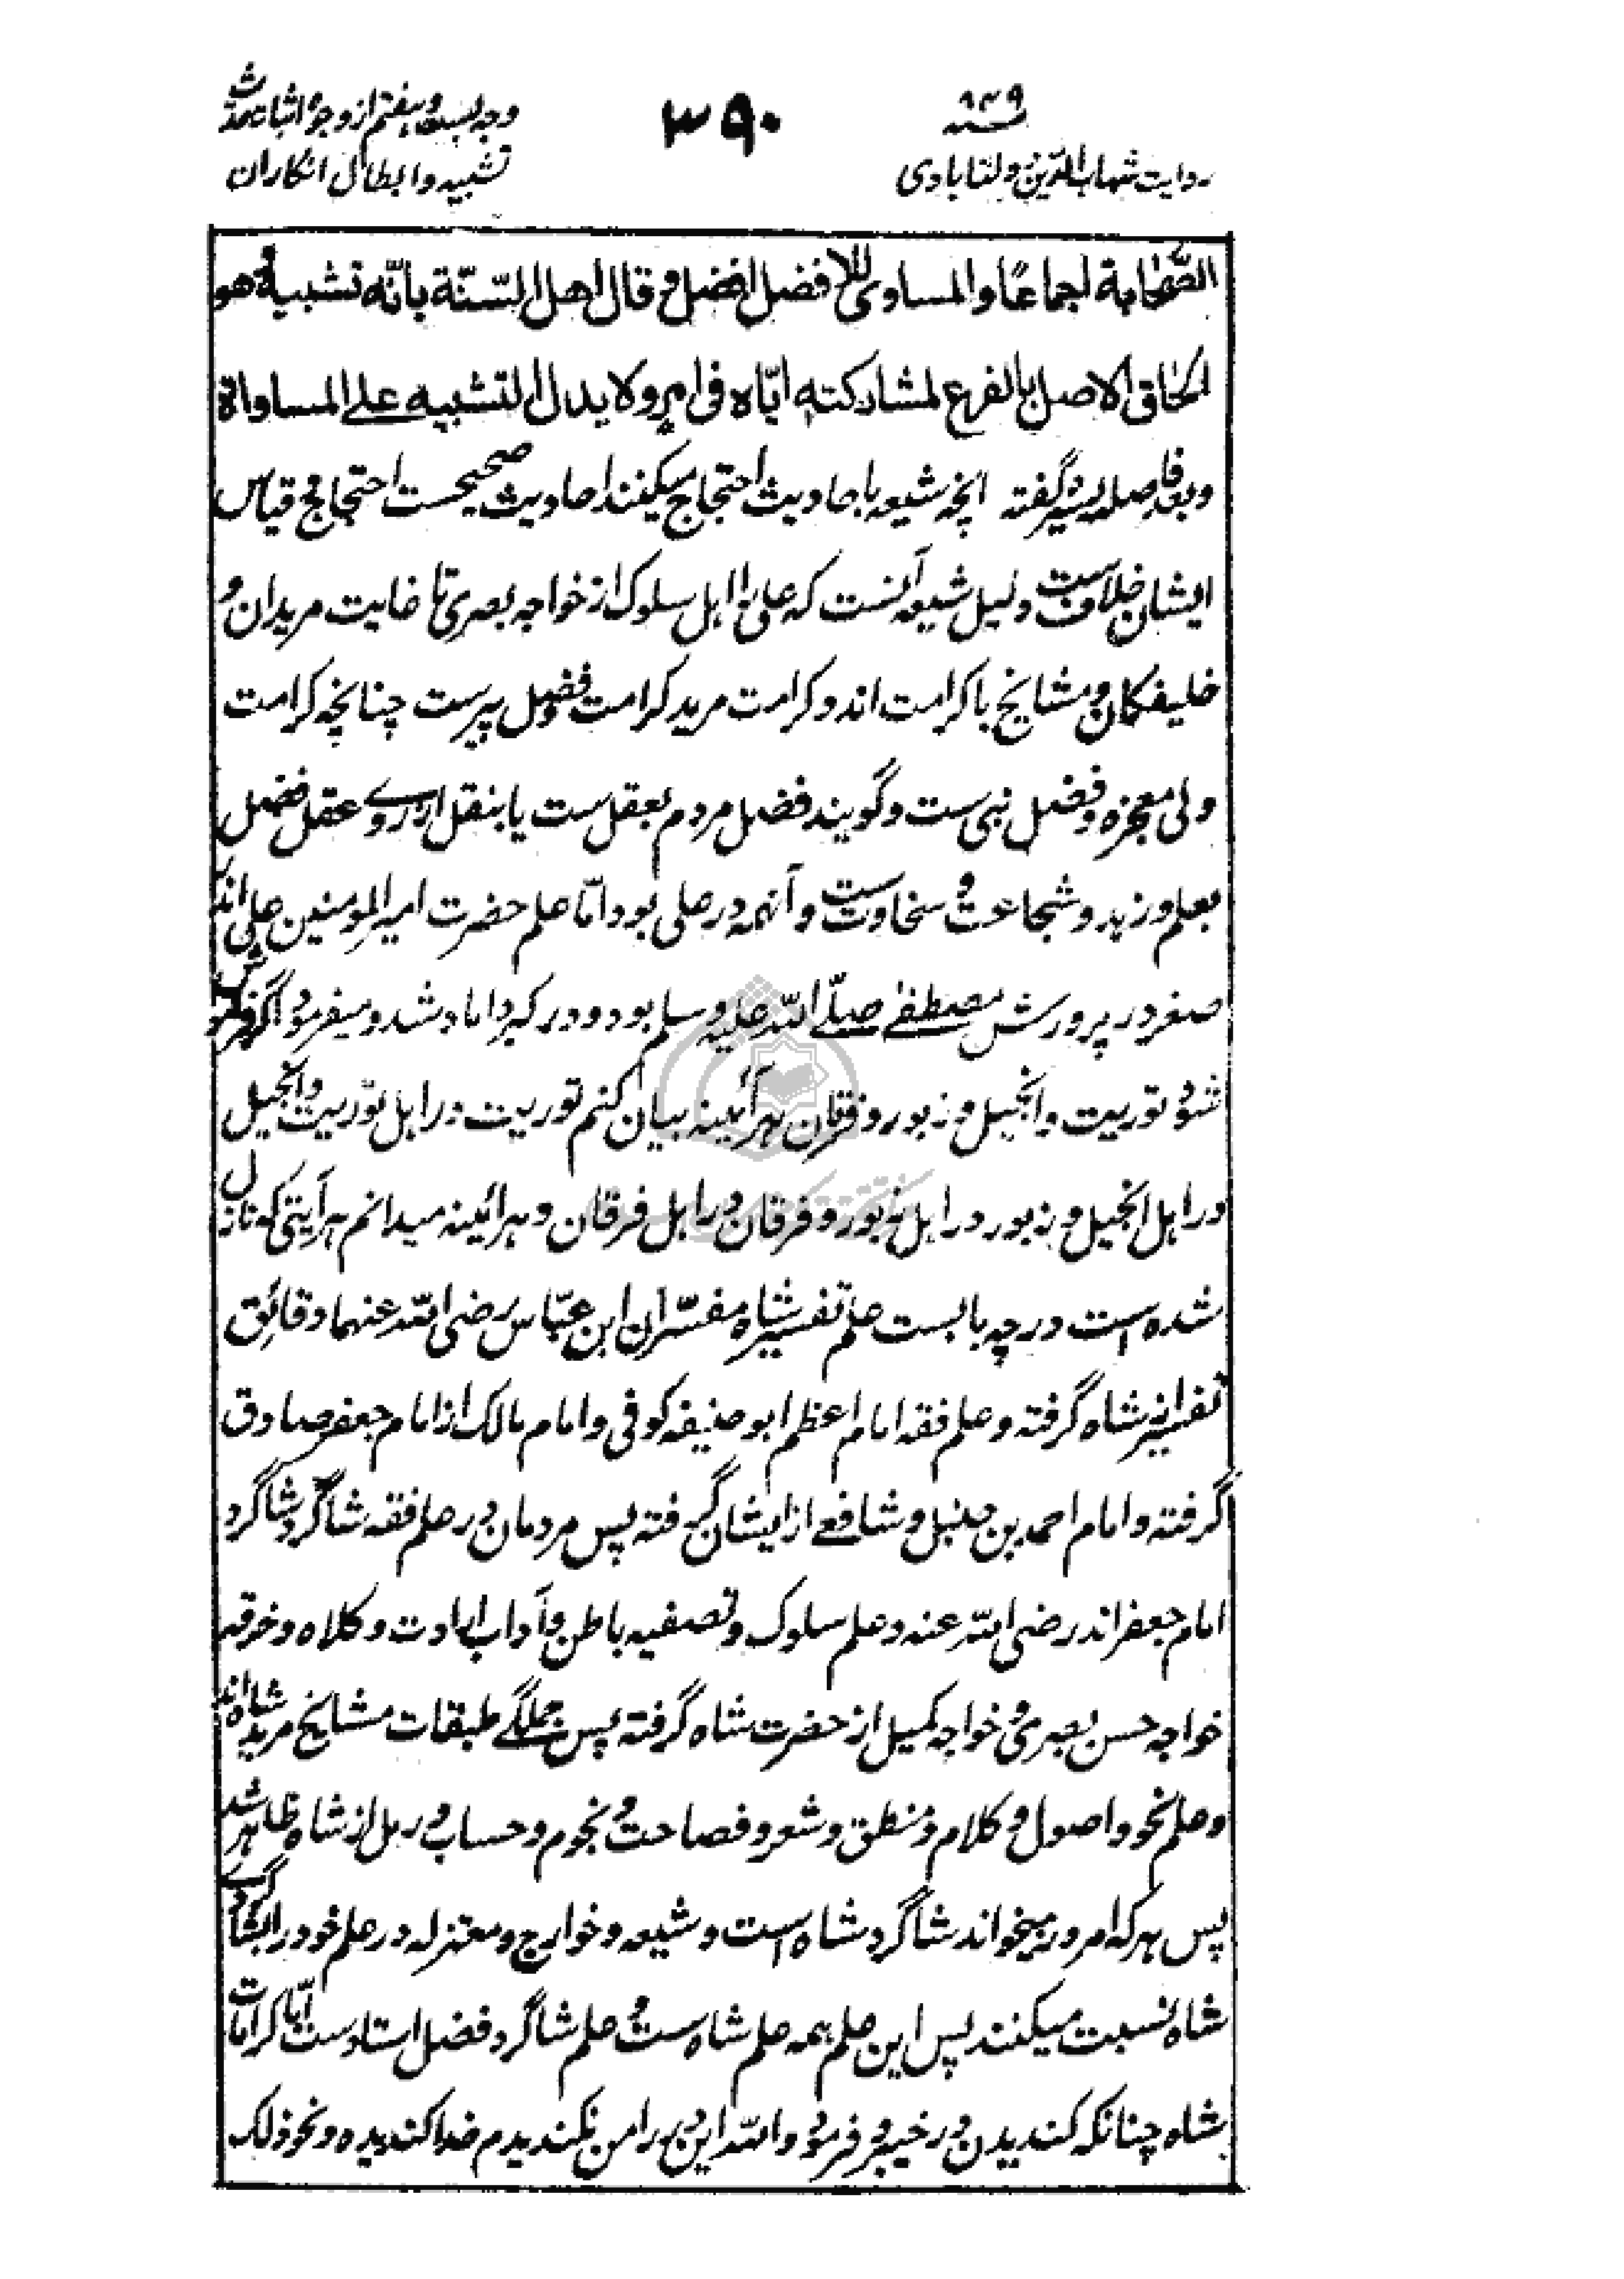 ۸۴۹
روایت شهاب الدین دولتابادی
۳۹۰
وجه بیست و هفتم از وجوه اثبات حدیث
تشبیه و ابطال انکار ان
الصّحابة اجماعًا والمساوى للافضل افضل و قال اهل السّنّة بانّه تشبیه و هو
الحاق الاصل بالفرع لمشارکته ایّاه فی امر و لا یدل التشبیه علی المساواة
و بعد فاصله یسیره گفته انچه شیعه باحادیث احتجاج میکنند احادیث صحیحست احتجاج و قیاس
ایشان خلافست و دلیل شیعه آنست که علی را اهل سلوک از خواجه بصری تا غایت مریدان و
خلیفگان و مشایخ با کرامت اند و کرامت مرید کرامت و فضل پیرست چنانچه کرامت
ولی معجزه و فضل نبی ست و گویند فضل مردم بعقل ست یا بنقل از روے عقل فضل
بعلم و زهد و شجاعت و سخاوتست و آنهمه در علی بود امّا علم حضرت امیر المومنین علی اندر
صغر در پرورش مصطفے صلّے الله علیه و سلم بود و در کبر داماد شد و میفرمود اگر فرش
شود توریت و انجیل و زبور و فرقان هر آئینه بیان کنم توریت در اهل توریت و انجیل
در اهل انجیل و زبور در اهل زبور و فرقان در اهل فرقان و هرائینه میدانم هر آیتی که نازل
شده است در چه بابست علم تفسیر شاه مفسّران ابن عبّاس رضی الله عنهما دقائق
تفسیر از شاه گرفته و علم فقه امام اعظم ابو حنیفه کوفی و امام مالک از امام جعفر صادق
گرفته و امام احمد بن حنبل و شافعے از ایشان گرفته پس مردمان در علم فقه شاگرد شاگرد
امام جعفر اند رضی الله عنه و علم سلوک و تصفیه باطن و آداب ارادت و کلاه و خرقه
خواجه حسن بصری و خواجه کمیل از حضرت شاه گرفته پس جملگے طبقات مشایخ مرید شاه اند
و علم نحو و اصول و کلام و منطق و شعر و فصاحت و نجوم و حساب و رمل از شاه ظاهر شد
پس هر که امروز میخواند شاگرد شاه است و شیعه و خوارج و معتزله در علم خود را بشاگردے
شاه نسبت میکنند پس این علم همه علم شاه ست و علم شاگرد فضل استادست امّا کرامات
شاه چنانکه کندیدن در خیبر و فرمود والله این در را من نکندیدم خدا کندیده و نحو ذلک